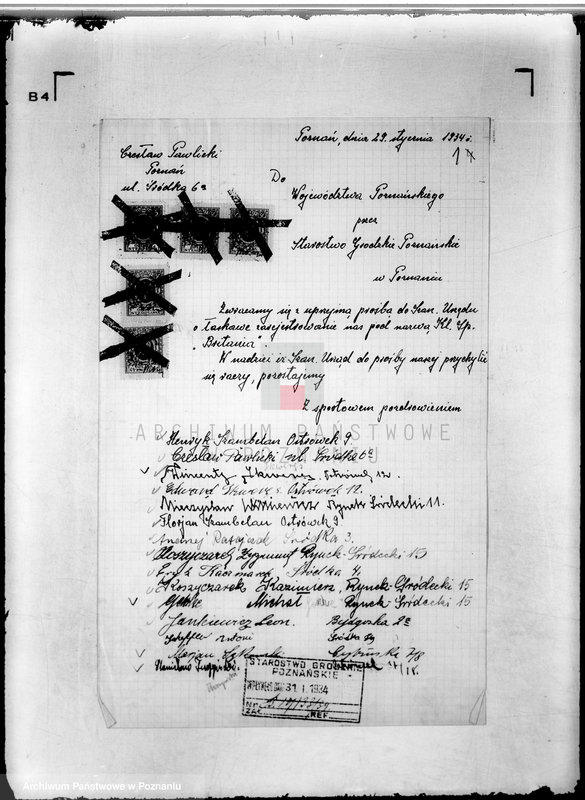 B4
Poznań, dnia 29. stycznia 1934 r.
Czesław Pawlicki
Poznań
ul. Śródka 6a
Do
Województwa Poznańskiego
przez
Starostwo Grodzkie Poznańskie
w Poznaniu
Zwracamy się z uprzejmą prośbą do Szan. Urzędu
o łaskawe zarejestrowanie nas pod nazwą Kl. Sp.
"Britania".
W nadziei iż Szan. Urząd do prośby naszej przychylić
się raczy, pozostajemy
Z sportowem pozdrowieniem
ARCHIWUM PAŃSTWOWE
Henryk Szambelan Ostrówek 9
Czesław Pawlicki ul. Śródka 6a
Ostrówek 12.
Edward Ostrówek 12.
Mieczysław Rynek Śródecki 11.
Florjan Szambelan Ostrówek 9
Andrzej Ratajczak Śródka 3.
Koszyczarek Zygmunt Rynek-Śródecki 15
Eryk Kaczmarek Śródka 4.
Koszyczarek Kazimierz, Rynek-Śródecki 15
Michał Rynek-Śródecki 15
Jankiewicz Leon. Bydgoska 2a
Antoni Śródka
Marjan Cybińska 7/8
Stanisław
STAROSTWO GRODZKIE
POZNAŃSKIE
31 I. 1934
Nr
ZAŁ. REF.
Archiwum Państwowe w Poznaniu